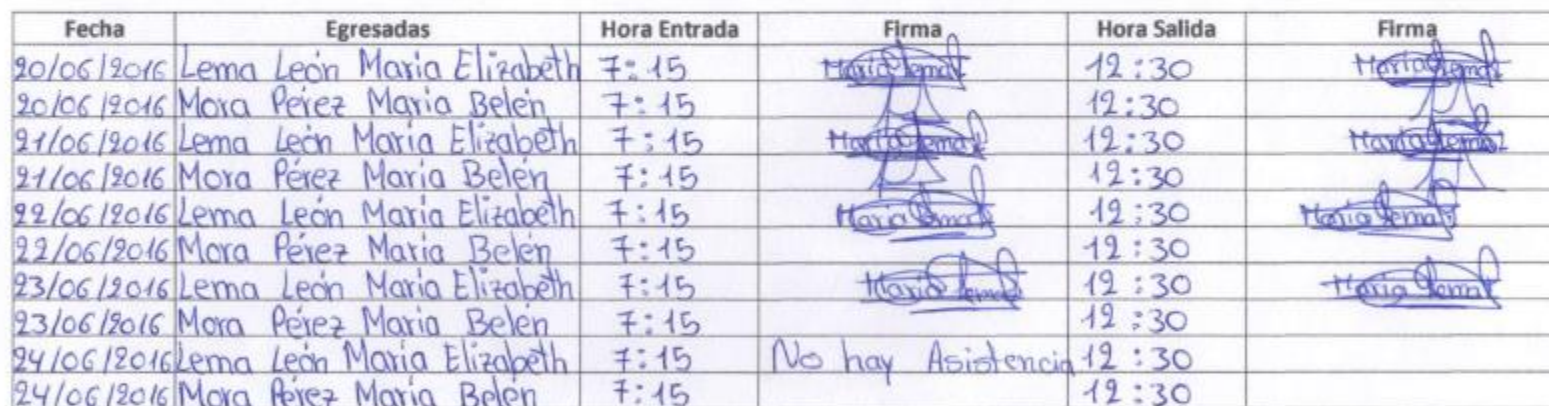 Fecha Egresadas Hora Entrada Firma Hora Salida Firma
20/06/2016 Lema León Maria Elizabeth 7:15 Maria Lema 12:30 Maria Lema
20/06/2016 Mora Pérez Maria Belén 7:15 12:30
21/06/2016 Lema León Maria Elizabeth 7:15 Maria Lema 12:30 Maria Lema
21/06/2016 Mora Pérez Maria Belén 7:15 12:30
22/06/2016 Lema León Maria Elizabeth 7:15 Maria Lema 12:30 Maria Lema
22/06/2016 Mora Pérez Maria Belén 7:15 12:30
23/06/2016 Lema León Maria Elizabeth 7:15 Maria Lema 12:30 Maria Lema
23/06/2016 Mora Pérez Maria Belén 7:15 12:30
24/06/2016 Lema León Maria Elizabeth 7:15 No hay Asistencia 12:30
24/06/2016 Mora Pérez Maria Belén 7:15 12:30